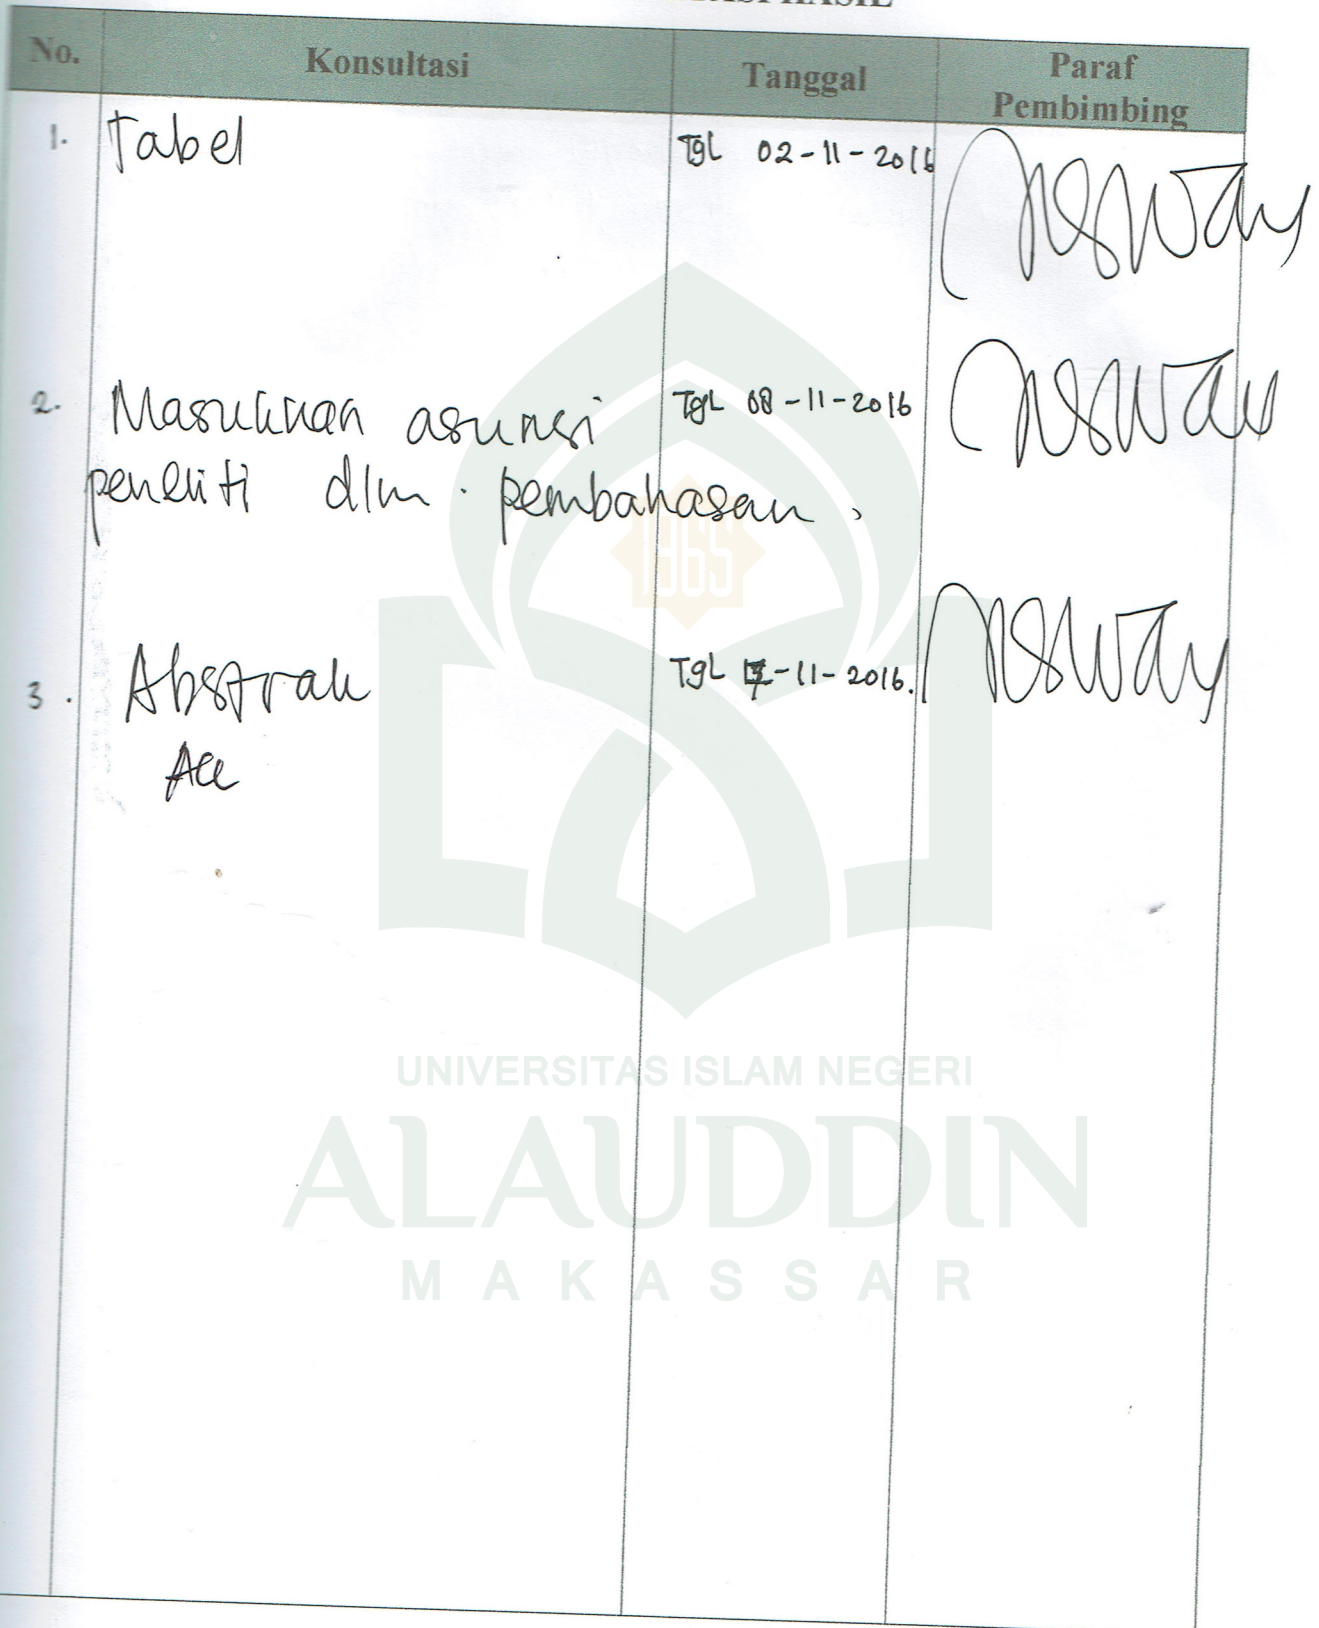 No. Konsultasi Tanggal Paraf
Pembimbing
1. Tabel Tgl 02-11-2016
2. Masukkan asumsi Tgl 08-11-2016
peneliti dlm. pembahasan.
1965
3. Abstrak Tgl -11-2016.
Acc
UNIVERSITAS ISLAM NEGERI
ALAUDDIN
MAKASSAR